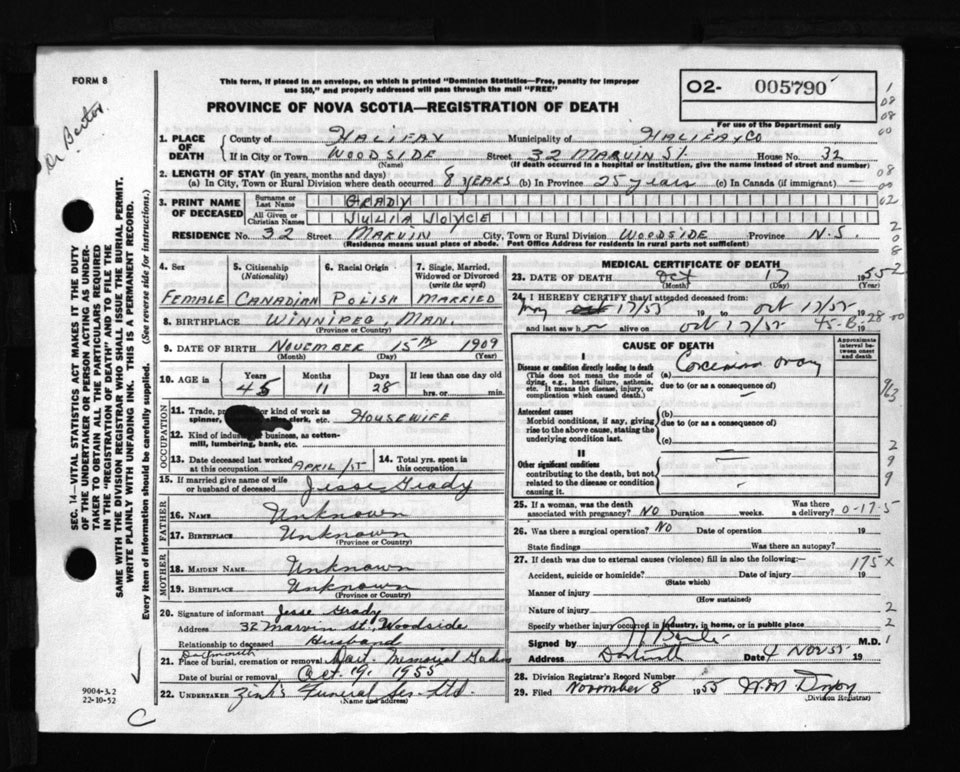 FORM 8
This form, if placed in an envelope, on which is printed "Dominion Statistics—Free, penalty for improper
use $50," and properly addressed will pass through the mail "FREE"
PROVINCE OF NOVA SCOTIA—REGISTRATION OF DEATH
O2- 005790
For use of the Department only
1. PLACE OF DEATH County of HALIFAX Municipality of HALIFAX CO
If in City or Town WOODSIDE Street 32 MARVIN ST. House No. 32
(Name) (If death occurred in a hospital or institution, give the name instead of street and number)
2. LENGTH OF STAY (in years, months and days)
(a) In City, Town or Rural Division where death occurred 8 YEARS (b) In Province 25 years (c) In Canada (if immigrant) —
3. PRINT NAME OF DECEASED Surname or Last Name GRADY
All Given or Christian Names JULIA JOYCE
RESIDENCE No. 32 Street MARVIN City, Town or Rural Division WOODSIDE Province N.S.
(Residence means usual place of abode. Post Office Address for residents in rural parts not sufficient)
4. Sex FEMALE
5. Citizenship (Nationality) CANADIAN
6. Racial Origin POLISH
7. Single, Married, Widowed or Divorced (write the word) MARRIED
8. BIRTHPLACE WINNIPEG, MAN.
(Province or Country)
9. DATE OF BIRTH NOVEMBER 15TH 1909
(Month) (Day) (Year)
10. AGE in Years 45 Months 11 Days 28 If less than one day old
hrs. or min.
OCCUPATION
11. Trade, or kind of work as
spinner, clerk, etc. HOUSEWIFE
12. Kind of industry or business, as cotton-
mill, lumbering, bank, etc.
13. Date deceased last worked
at this occupation APRIL/55
14. Total yrs. spent in
this occupation
15. If married give name of wife
or husband of deceased Jesse Grady
FATHER
16. NAME Unknown
17. BIRTHPLACE Unknown
(Province or Country)
MOTHER
18. MAIDEN NAME Unknown
19. BIRTHPLACE Unknown
(Province or Country)
20. Signature of informant Jesse Grady
Address 32 Marvin St. Woodside
Relationship to deceased Husband
Dartmouth
21. Place of burial, cremation or removal Dart. Memorial Gardens
Date of burial or removal Oct. 19, 1955
22. UNDERTAKER Zink's Funeral Ser. Ltd.
(Name and address)
MEDICAL CERTIFICATE OF DEATH
23. DATE OF DEATH Oct 17 1955
(Month) (Day) (Year)
24. I HEREBY CERTIFY that I attended deceased from:
May 17/55 19 to oct 17/55 19
and last saw h alive on oct 17/55 19
CAUSE OF DEATH
Approximate interval between onset and death
I
Disease or condition directly leading to death
(This does not mean the mode of
dying, e.g., heart failure, asthenia,
etc. It means the disease, injury, or
complication which caused death.)
(a) Carcinoma ovary
due to (or as a consequence of)
Antecedent causes
Morbid conditions, if any, giving
rise to the above cause, stating the
underlying condition last.
(b)
due to (or as a consequence of)
(c)
II
Other significant conditions
contributing to the death, but not
related to the disease or condition
causing it.
25. If a woman, was the death
associated with pregnancy? NO Duration weeks. Was there a delivery?
26. Was there a surgical operation? NO Date of operation 19
State findings Was there an autopsy?
27. If death was due to external causes (violence) fill in also the following:—
Accident, suicide or homicide? Date of injury 19
(State which)
Manner of injury
(How sustained)
Nature of injury
Specify whether injury occurred in industry, in home, or in public place
Signed by M.D.
Address Dartmouth Date 4 Nov 55 19
28. Division Registrar's Record Number
29. Filed November 8 1955
(Division Registrar)
SEC. 14—VITAL STATISTICS ACT MAKES IT THE DUTY
OF THE UNDERTAKER OR PERSON ACTING AS UNDER-
TAKER TO OBTAIN ALL THE PARTICULARS REQUIRED
IN THE "REGISTRATION OF DEATH" AND TO FILE THE
SAME WITH THE DIVISION REGISTRAR WHO SHALL ISSUE THE BURIAL PERMIT.
WRITE PLAINLY WITH UNFADING INK. THIS IS A PERMANENT RECORD.
Every item of information should be carefully supplied. (See reverse side for instructions.)
9004-3.2
22-10-52
C